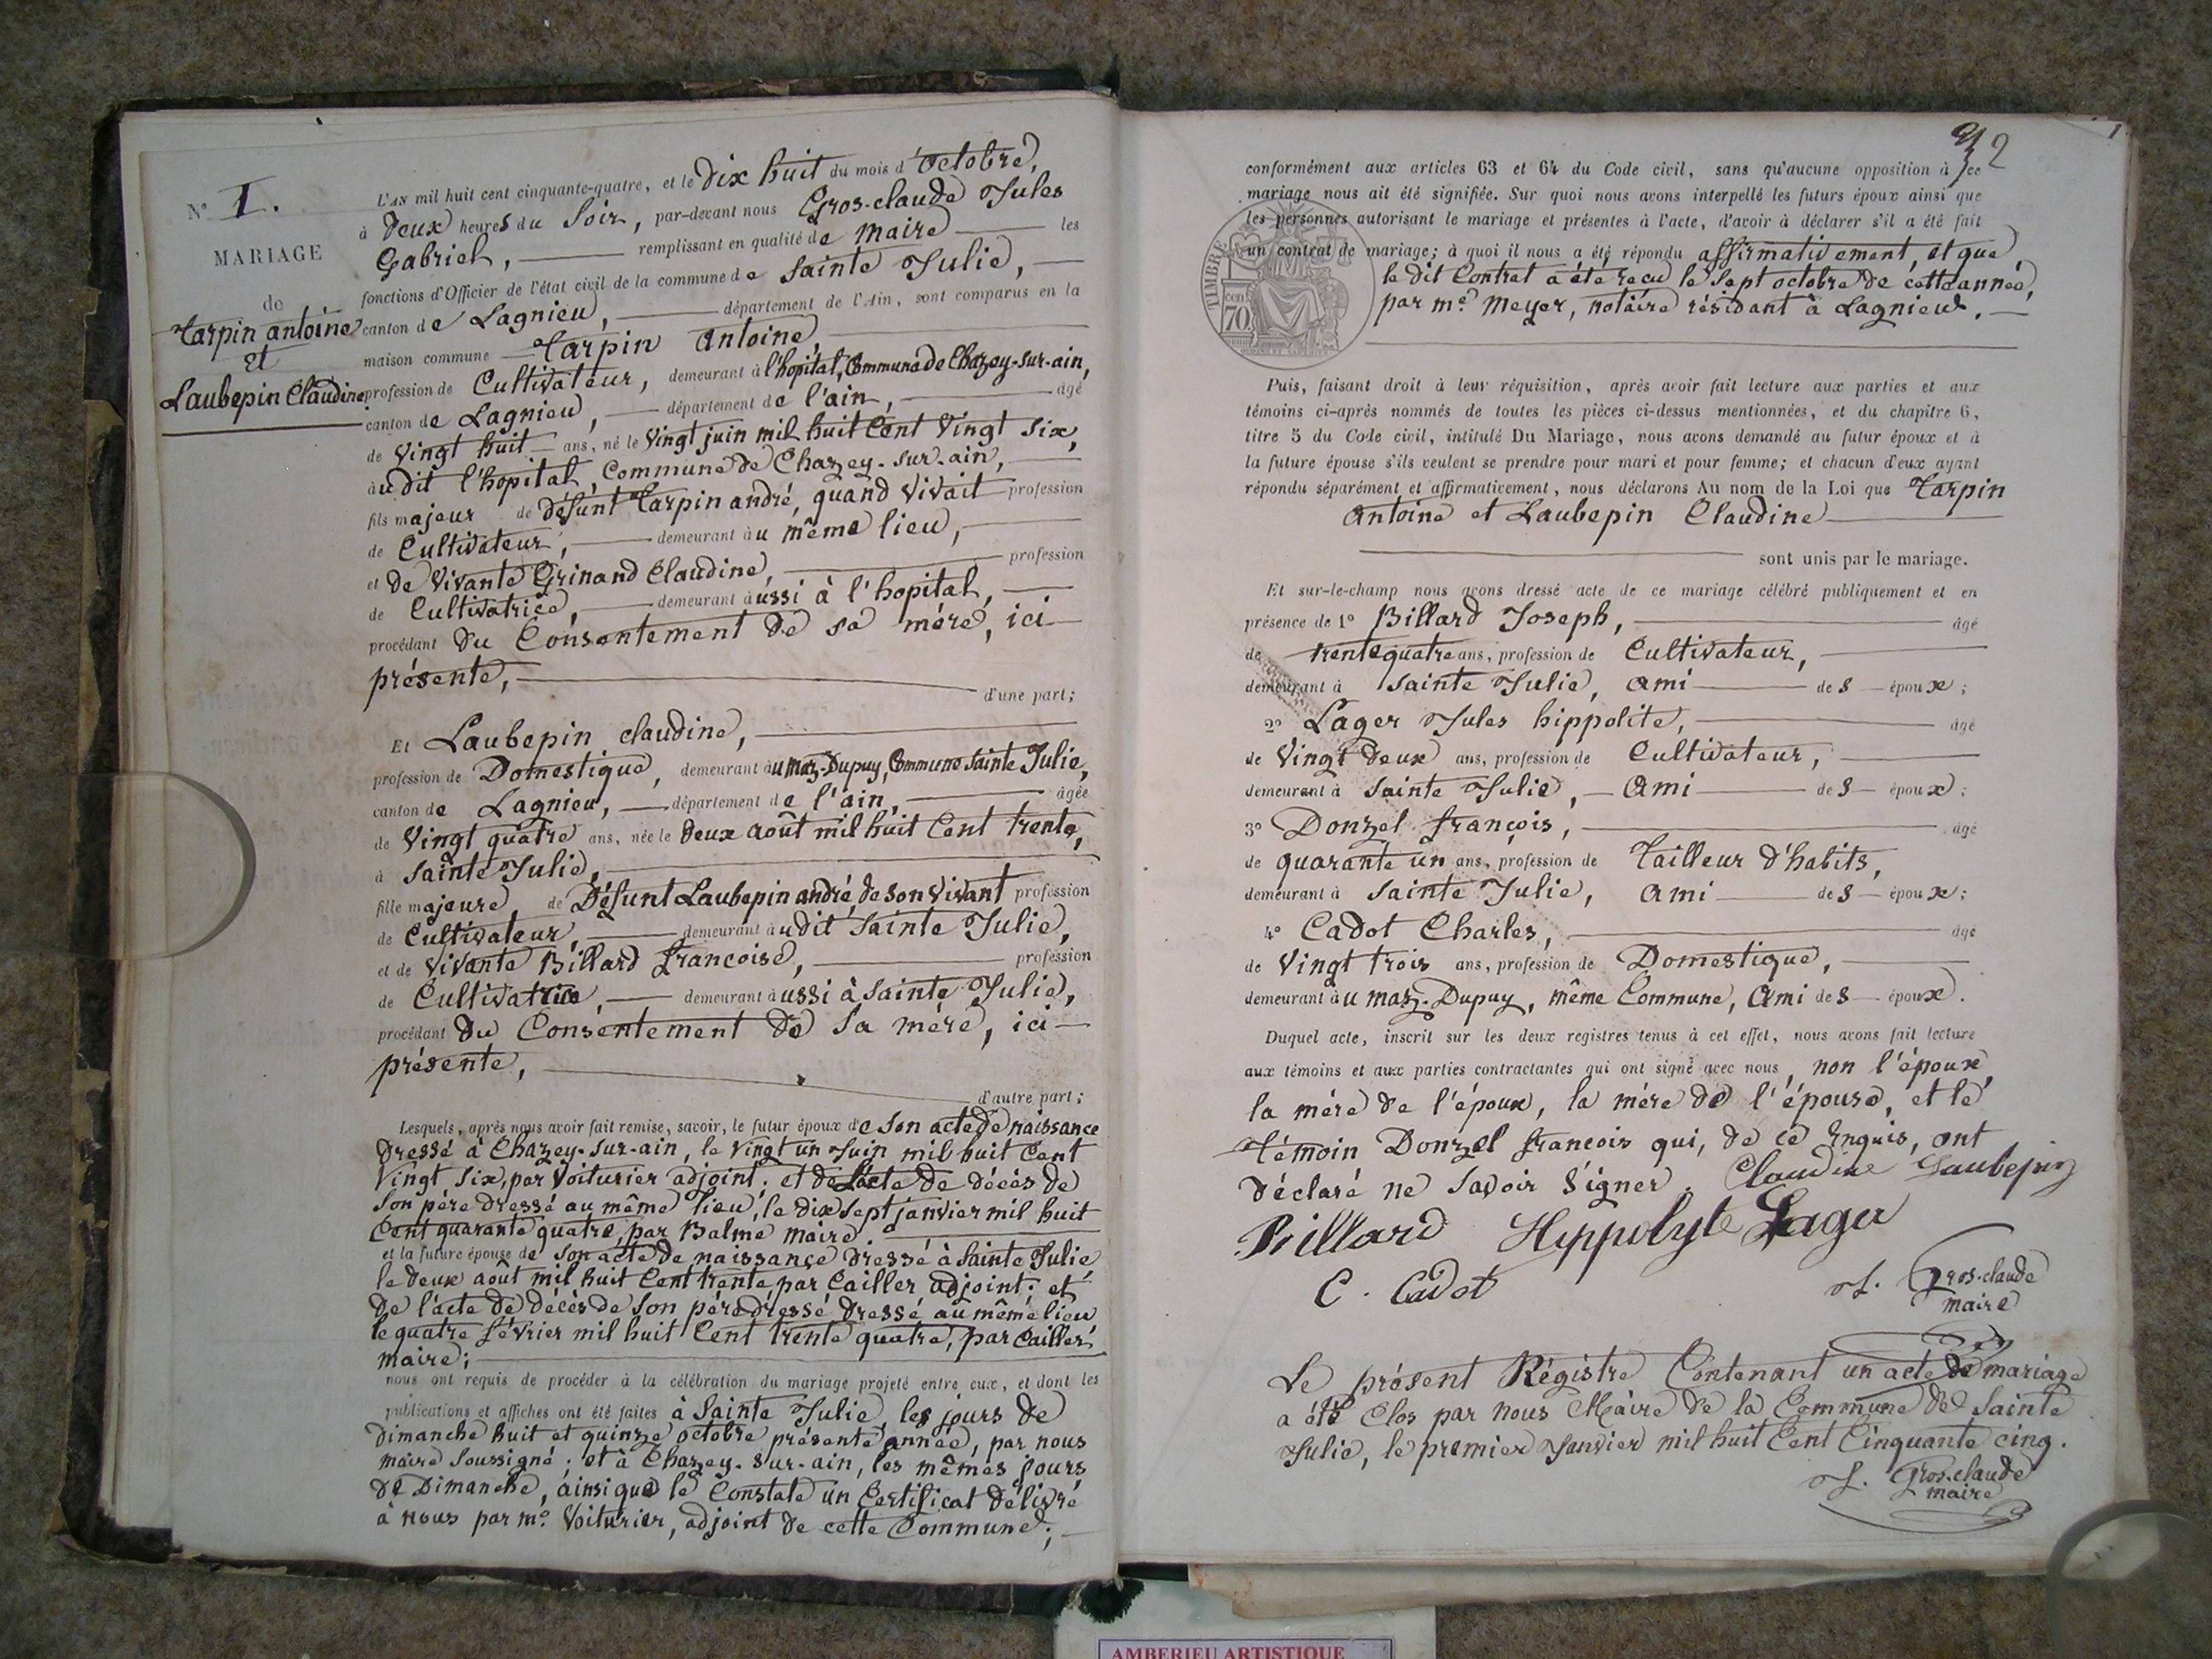 N° 1.
MARIAGE
de
Tarpin antoine
et
Laubepin Claudine
L'AN mil huit cent cinquante-quatre, et le dix huit du mois d'octobre,
à deux heures du soir, par-devant nous Gros-claude Jules
Gabriel, remplissant en qualité de maire les
fonctions d'Officier de l'état civil de la commune de Sainte Julie,
canton de Lagnieu, département de l'Ain, sont comparus en la
maison commune Tarpin Antoine,
profession de Cultivateur, demeurant à l'hopital, Commune de Chazey-sur-ain,
canton de Lagnieu, département de l'ain, âgé
de vingt huit ans, né le vingt juin mil huit Cent vingt six,
audit l'hopital, Commune de Chazey-sur-ain,
fils majeur de défunt Tarpin andré, quand vivait profession
de Cultivateur, demeurant au même lieu,
et de vivante Grinand Claudine, profession
de Cultivatrice, demeurant aussi à l'hopital,
procédant du Consentement de sa mère, ici
présente, d'une part;
Et Laubepin claudine,
profession de Domestique, demeurant au maz-Dupuy, Commune Sainte Julie,
canton de Lagnieu, département de l'ain, âgée
de vingt quatre ans, née le deux août mil huit Cent trente,
à Sainte Julie,
fille majeure de Défunt Laubepin andré, de son vivant profession
de Cultivateur, demeurant audit Sainte Julie,
et de vivante Billard françoise, profession
de Cultivatrice, demeurant aussi à Sainte Julie,
procédant du Consentement de sa mère, ici
présente,
d'autre part;
Lesquels, après nous avoir fait remise, savoir, le futur époux de son acte de naissance
dressé à Chazey-sur-ain, le vingt un Juin mil huit Cent
vingt six, par Voiturier adjoint; et de l'acte de décès de
son père dressé au même lieu, le dix sept janvier mil huit
Cent quarante quatre, par Balme maire.
et la future épouse de son acte de naissance dressé à Sainte Julie
le deux août mil huit Cent trente par Cailler adjoint; et
de l'acte de décès de son père dressé dressé au même lieu
le quatre février mil huit Cent trente quatre, par Cailler
maire;
nous ont requis de procéder à la célébration du mariage projeté entre eux, et dont les
publications et affiches ont été faites à Sainte Julie, les jours de
dimanche huit et quinze octobre présente année, par nous
maire soussigné; et à Chazey-sur-ain, les mêmes jours
de Dimanche, ainsi que le Constate un Certificat délivré
à nous par mr. Voiturier, adjoint de cette Commune;
32
conformément aux articles 63 et 64 du Code civil, sans qu'aucune opposition à ce
mariage nous ait été signifiée. Sur quoi nous avons interpellé les futurs époux ainsi que
les personnes autorisant le mariage et présentes à l'acte, d'avoir à déclarer s'il a été fait
un contrat de mariage; à quoi il nous a été répondu affirmativement, et que
le dit Contrat a été reçu le sept octobre de cette année,
par me. Meyer, notaire résidant à Lagnieu.
TIMBRE
cen
70
Puis, faisant droit à leur réquisition, après avoir fait lecture aux parties et aux
témoins ci-après nommés de toutes les pièces ci-dessus mentionnées, et du chapitre 6,
titre 5 du Code civil, intitulé Du Mariage, nous avons demandé au futur époux et à
la future épouse s'ils veulent se prendre pour mari et pour femme; et chacun d'eux ayant
répondu séparément et affirmativement, nous déclarons Au nom de la Loi que Tarpin
Antoine et Laubepin Claudine
sont unis par le mariage.
Et sur-le-champ nous avons dressé acte de ce mariage célébré publiquement et en
présence de 1° Billard Joseph, âgé
de trente quatre ans, profession de Cultivateur,
demeurant à Sainte Julie, Ami des époux;
2° Lager Jules hippolite, âgé
de vingt deux ans, profession de Cultivateur,
demeurant à Sainte Julie, Ami des époux;
3° Donzel françois, âgé
de quarante un ans, profession de Tailleur d'habits,
demeurant à Sainte Julie, Ami des époux;
4° Cadot Charles, âgé
de vingt trois ans, profession de Domestique,
demeurant au maz-Dupuy, même Commune, Ami des époux.
Duquel acte, inscrit sur les deux registres tenus à cet effet, nous avons fait lecture
aux témoins et aux parties contractantes qui ont signé avec nous, non l'époux,
la mère de l'époux, la mère de l'épouse, et le
témoin Donzel françois qui, de ce Enquis, ont
déclaré ne savoir signer. Claudine Laubepin
Billard Hippolyte Lager
C. Cadot J. Gros-claude
maire
Le présent Régistre Contenant un acte de mariage
a été Clos par nous Maire de la Commune de Sainte
Julie, le premier Janvier mil huit Cent Cinquante cinq.
J. Gros-claude
maire
AMBERIEU ARTISTIQUE